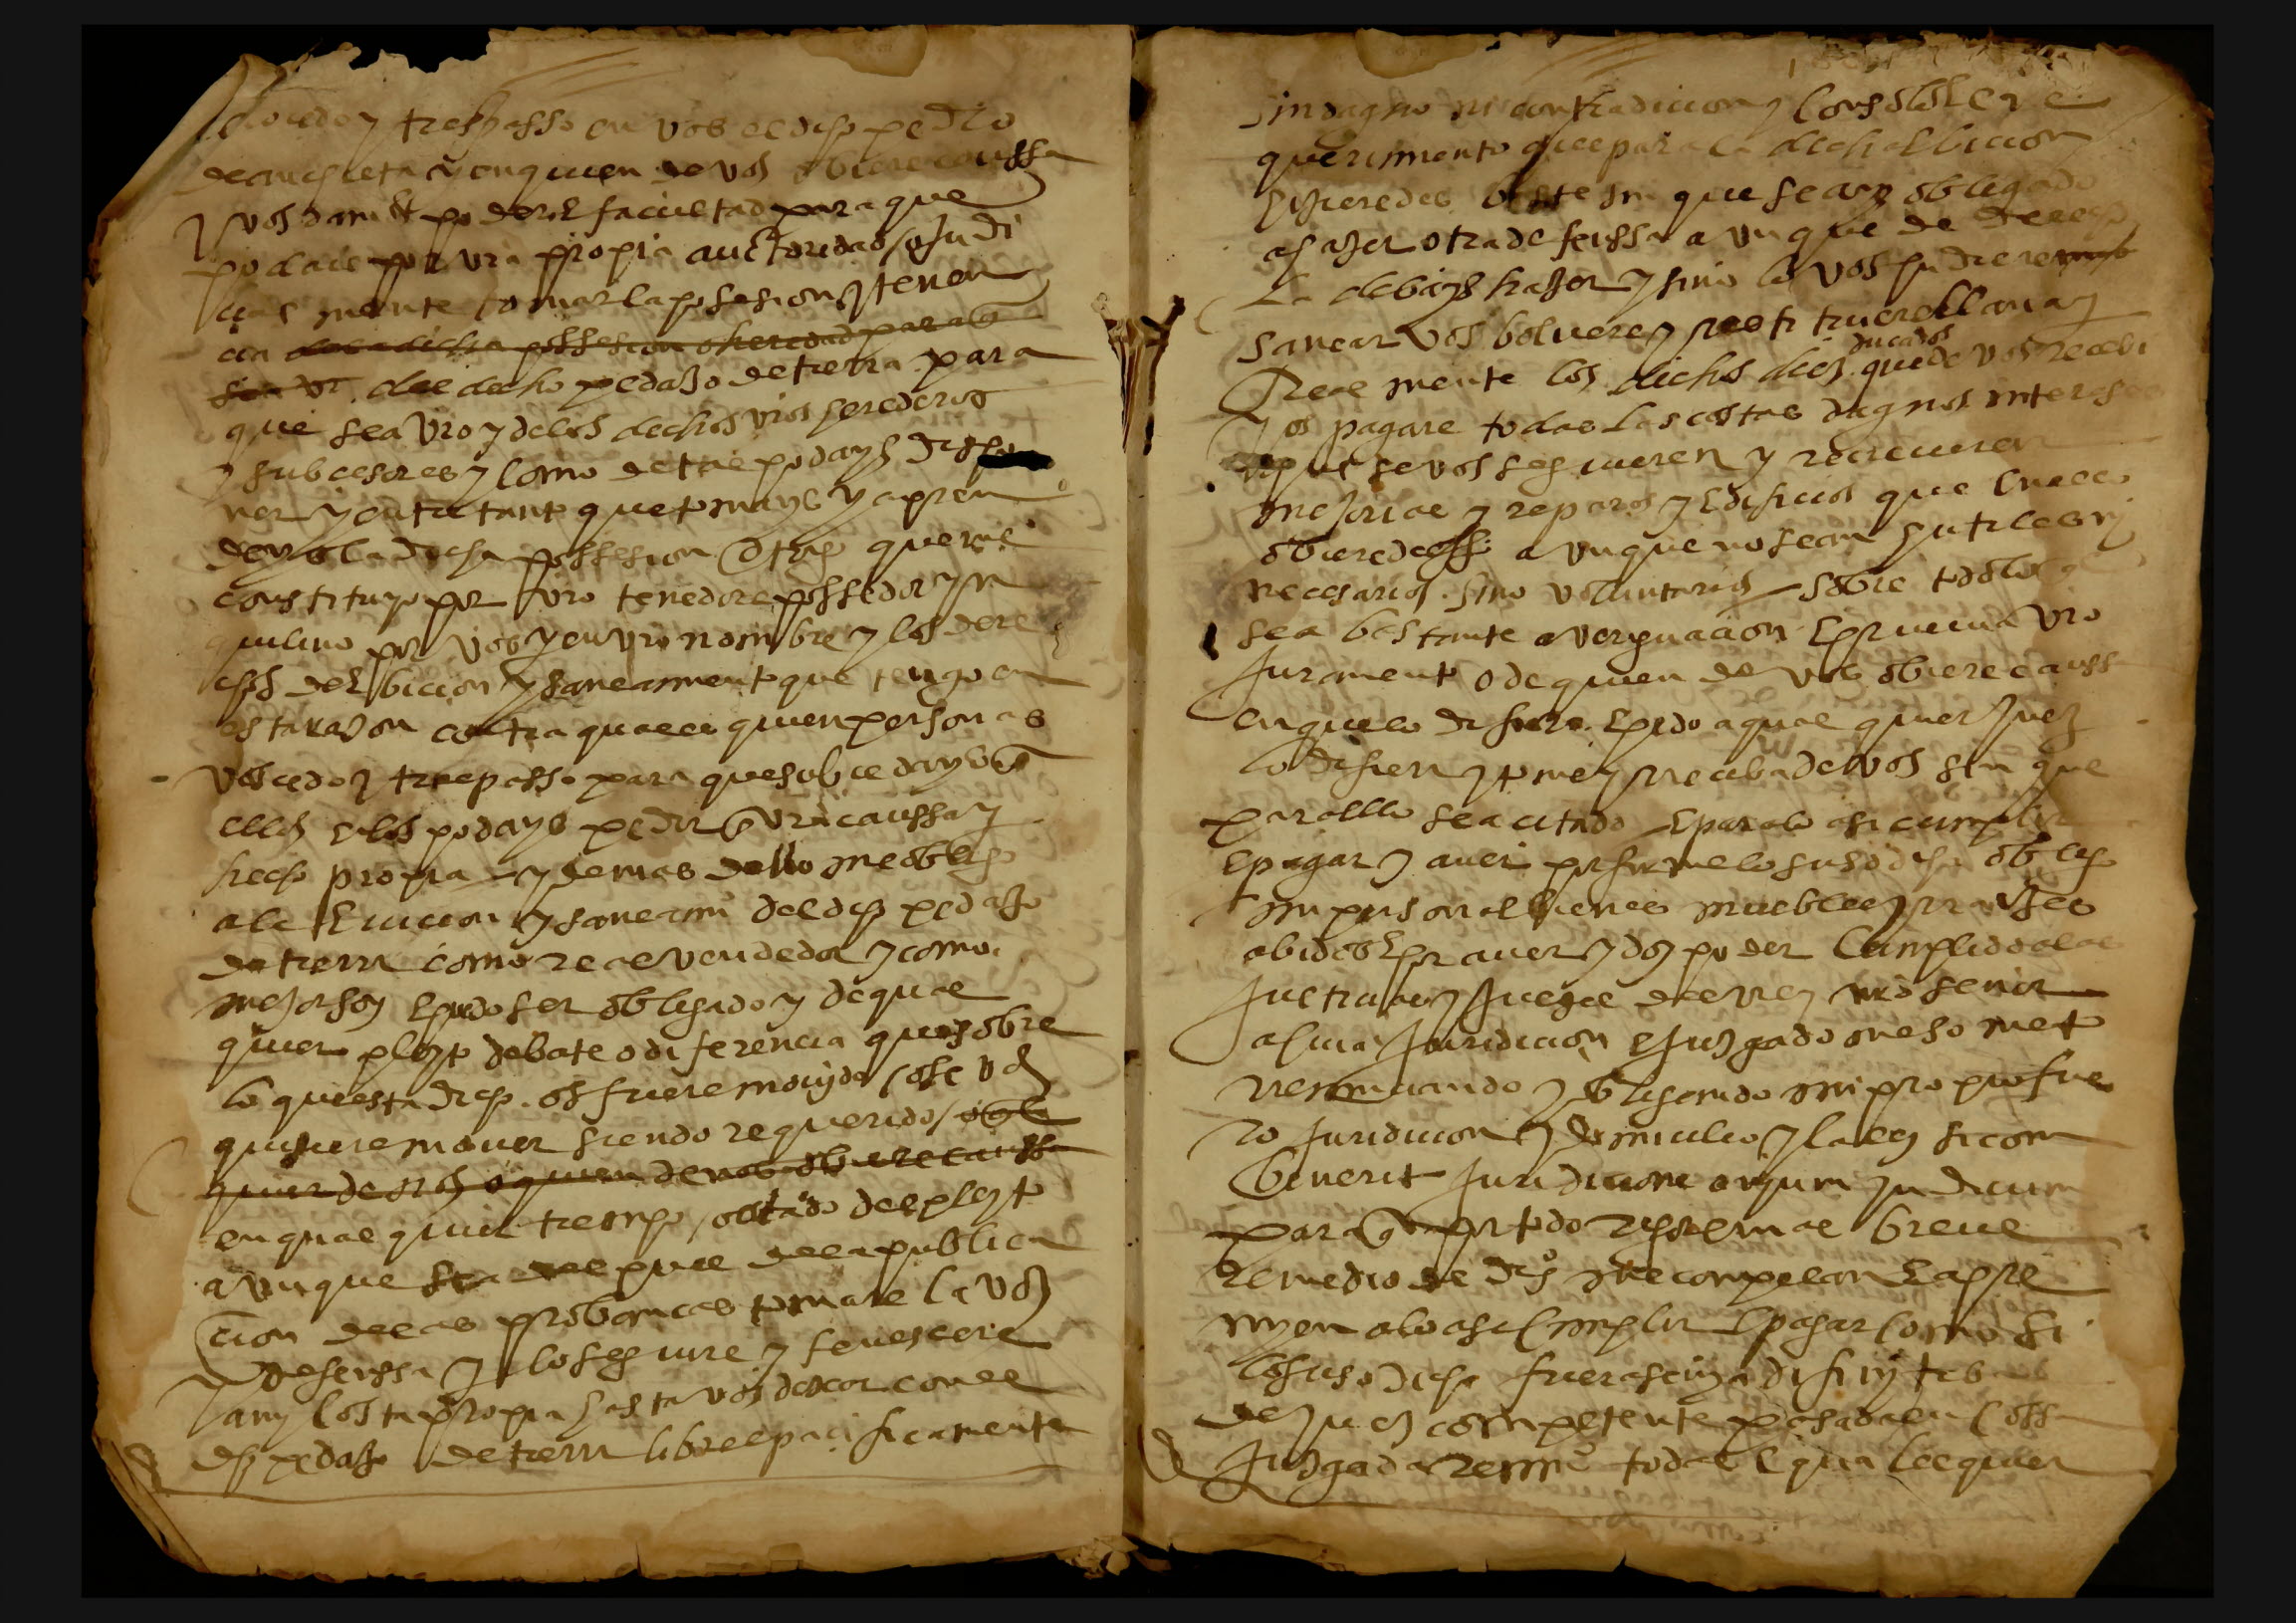 cedo y trespasso en vos el dicho pedro
de anchieta y en quien de vos obiere caussa
y vos doi poder e facultad para que
podais por vra propia auctoridad o judi
cialmente tomar la posesion y tenen
cia de la dicha possesion o heredad para que
sea vr del dicho pedaso de tierra para
que sea vro y de los dichos vros herederos
y subcesores y como de tal podays dispo
ner y entre tanto que tomays y apren
deys la dicha possesion otorgo que me
constituyo por vro tenedor e possedor yn
quilino por vos y en vro nombre y los dere
chos de ebicion y saneamiento que tengo en
esta razon contra qualesquier personas
vos cedo y trespasso para que subcedays en
ellos e los podays pedir en vra caussa y
hecho propia y demas dello me obligo
a la eviccion y saneamio del dho pedasso
de tierra como real vendedor y como
mejor soy e puedo ser obligado y de qual
quier pleyto debate o diferencia que sobre
lo que esta dicho os fuere movydo o se vos
quisiere mover siendo requerido
quier de nos o quien de vos obiere caussa
en qual quier tiempo o estado del pleyto
avnque sea despues de la publica
cion de las probancas tomare la vos
defenssa y lo seguire y fenescere
a my costa propia hasta vos dexar con el
dho pedasso de tierra libre e pacificamente
sin dagno ni contradicion y con solo el re
querimento que para la dicha ebicion
hizieredes baste sin que seays obligado
a hazer otra defenssa avnque de derecho
la debays hazer y sino lo vos pudiere
sanear vos bolvere y restituyre llana y
Realmente los dichos diez ducados que de vos recebi
y os pagare todas las costas dagnos interese
que se vos siguieren y recrecieren
mejorias y reparos y edificios que en ello
obieredes avnque no sean hutiles ni
necesarios sino voluntarios sobre todo lo
sea bastante averiguacion e prueva vro
Juramento o de quien de vos obiere causs
en que lo difiero e pido a qual quier Juez
lo difiera y tome y reciba de vos sin que
para ello sea citado e para lo asi cumplir
e pagar y aver por firme lo susodicho obligo
mi persona e bienes muebles y rrayses
abidos e por aver y doy poder cumplido a las
Justicias y Jueses del rrey nro senor
a cuia Juridicion e Juzgado me someto
renunciando y obligando mi propio fue
ro Juridicion y domicilio y la ley si con
benerit Juridicione onium judicum
para que por todo rigor e mas breve
remedio de dro me compelan e apre
myen a lo asi cumplir e pagar como si
lo susodicho fuera sentencia difinytiba
de Juez competente pasada en cossa
Juzgada Renuo todas e quales quier